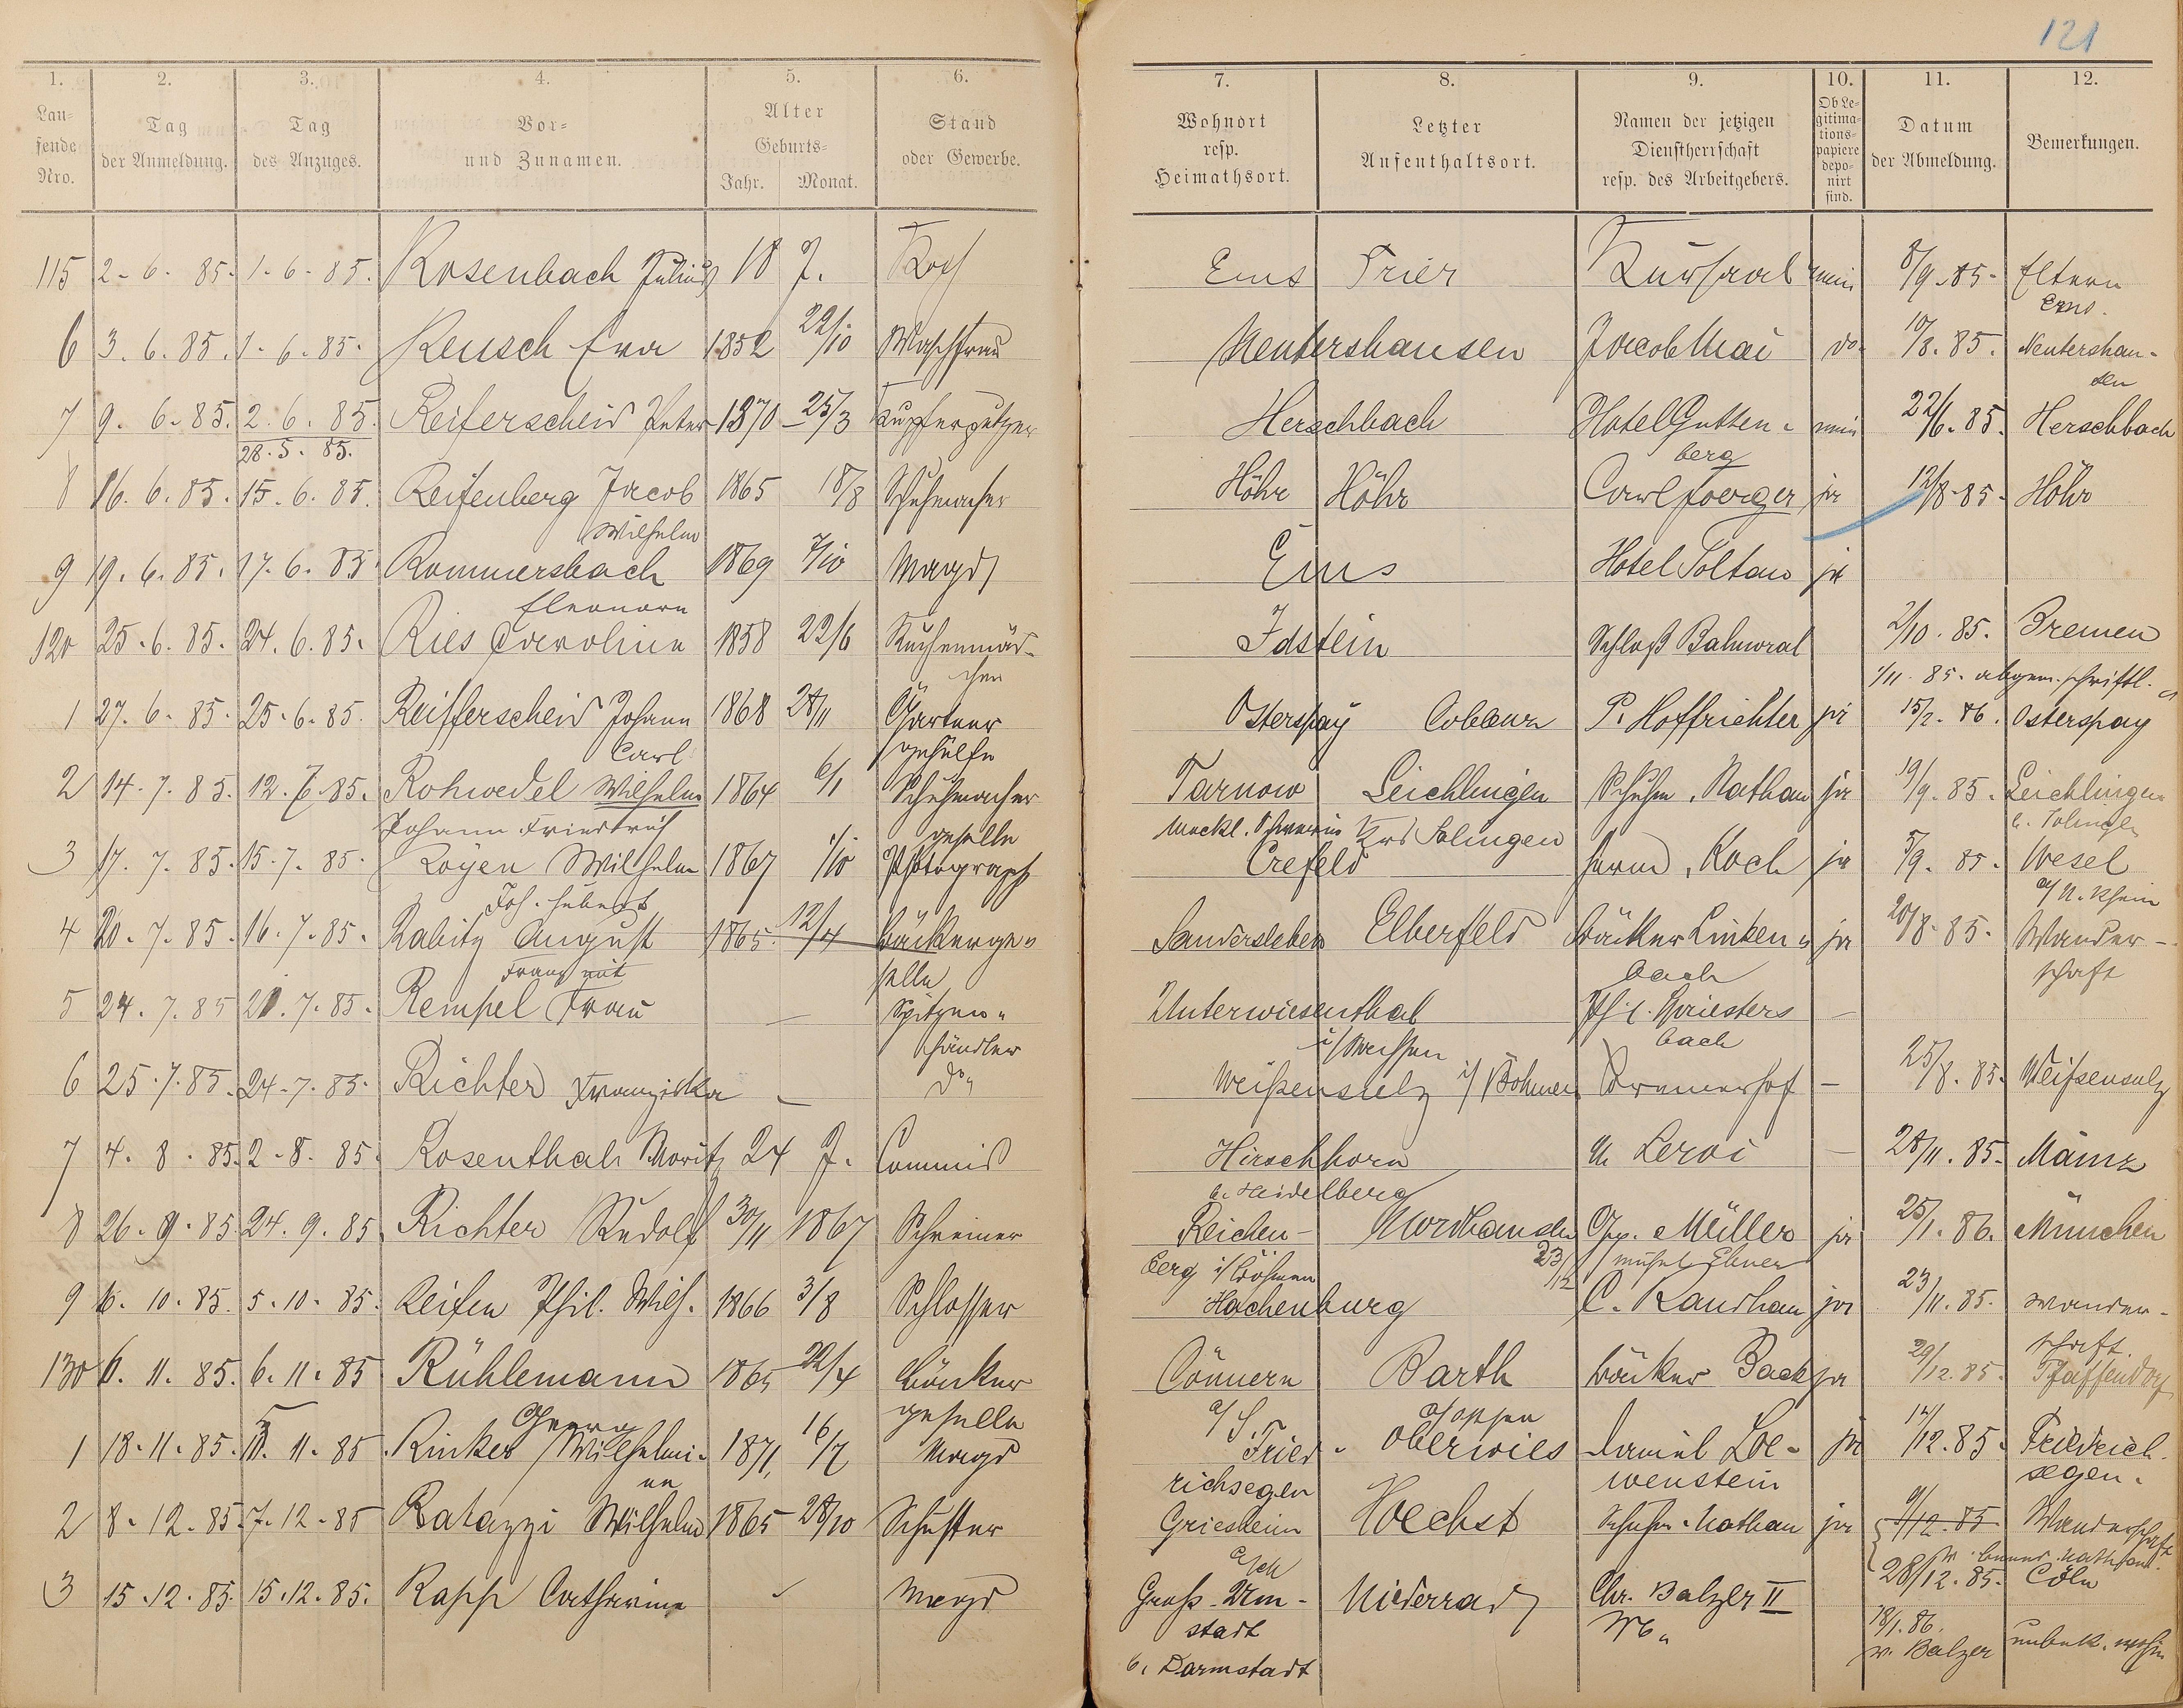 121
1. 2. 3. 4. 5. 6. 7. 8. 9. 10. 11. 12.
Lau-
fende
Nro.
Tag
der Anmeldung.
Tag
des Anzuges.
Vor-
und Zunamen.
Alter
Geburts-
Jahr. Monat.
Stand
oder Gewerbe.
Wohnort
resp.
Heimathsort.
Letzter
Aufenthaltsort.
Namen der jetzigen
Dienstherrschaft
resp. des Arbeitgebers.
Ob Le-
gitima-
tions-
papiere
depo-
nirt
sind.
Datum
der Abmeldung.
Bemerkungen.
115 2. 6. 85. 1. 6. 85. Rosenbach Julius 18 J. Koch Ems Trier Kursaal nein 8/9. 85. Eltern
Ems.
6 3. 6. 85. 1. 6. 85. Reusch Eva 1852 22/10 Waschfrau Nentershausen Jacob Mai do. 10/8. 85. Nentershau-
sen
7 9. 6. 85. 2. 6. 85. Reiferscheid Peter 1870 25/3 Kupferputzer Herschbach Hotel Gutten- nein 22/6. 85. Herschbach
28. 5. 85. berg
8 16. 6. 85. 15. 6. 85. Reifenberg Jacob 1865 18/8 Schuhmacher Höhr Höhr Carl Joerger ja 12/8. 85. Höhr
Wilhelm
9 19. 6. 85. 17. 6. 85. Rommersbach 1869 7/10 Magd Ems Hotel Soltau ja
Eleonora
120 25. 6. 85. 24. 6. 85. Ries Caroline 1858 22/6 Küchenmäd- Idstein Schloß Balmoral 2/10. 85. Bremen
chen 1/11. 85. abgem. schriftl.
1 27. 6. 85. 25. 6. 85. Reifferscheid Johann 1868 28/11 Gärtner Osterspay Coblenz P. Hoffrichter ja 15/2. 86. Osterspay
Carl gehülfe
2 14. 7. 85. 12. 7. 85. Rohwedel Wilhelm 1864 6/1 Schuhmacher Tarnow Leichlingen Schuhm. Nathan ja 19/9. 85. Leichlingen
Johann Friedrich geselle Meckl. Schwerin Krs Solingen b. Solingen
3 17. 7. 85. 15. 7. 85. Royen Wilhelm 1867 1/10 Photograph Crefeld Herm. Koch ja 5/9. 85. Wesel
Joh. Hubert a/ N. Rhein
4 20. 7. 85. 16. 7. 85. Rabitz August 1865 12/4 Bäckerge- Sandersleben Elberfeld Bäcker Linken- ja 20/8. 85. Wander-
Franz selle bach schaft
5 24. 7. 85 21. 7. 85. Rempel Frau — Spitzen- Unterwiesenthal Ph. —
händler bach
6 25. 7. 85. 24. 7. 85. Richter Franziska — do. Weißensulz i/ Böhmen Bremerhof — 25/8. 85. Weißensulz
7 4. 8. 85. 2. 8. 85. Rosenthal Moritz 24 J. Commis Hirschhorn M. Leroi — 28/11. 85. Mainz
b. Heidelberg
8 26. 9. 85. 24. 9. 85. Richter Rudolf 30/11 1867 Schreiner Reichen- Nordhausen Müller ja 25/1. 86. München
berg i/ Böhmen 23/12
9 6. 10. 85. 5. 10. 85. Reifen Phil. Wilh. 1866 3/8 Schlosser Hachenburg C. Kauthan ja 23/11. 85. Wander-
schaft.
130 6. 11. 85. 6. 11. 85 Rühlemann 1865 22/4 Bäcker Cönnern Barth Bäcker Bach ja 29/12. 85. Pfaffendorf
Georg geselle a/ S.
1 18. 11. 85. 11. 85. Rinker Wilhelmi- 1871 16/7 Magd Fried- Oberwies Daniel Loe- ja 14/12. 85. Friedrich-
ne richsegen wenstein segen.
2 8. 12. 85. 7. 12. 85 Ratazzi Wilhelm 1865 28/10 Schuster Griesheim Hoechst Schuhm. Nathan ja 9/12. 85 Wanderschaft
28/12. 85. Cöln
3 15. 12. 85. 15. 12. 85. Rapp Catharina Magd Groß-Um- Niederrad Chr. Balzer II
stadt Ww. 18/1. 86. unbek. wohin
b. Darmstadt w. Balzer